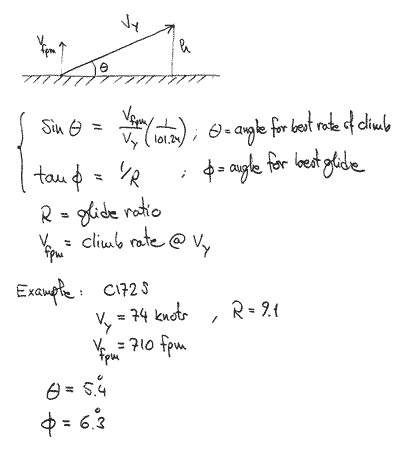 Vy
Vfpm
h
θ
sin θ = Vfpm/Vy (1/101.24) ; θ = angle for best rate of climb
tan ϕ = 1/R ; ϕ = angle for best glide
R = glide ratio
Vfpm = climb rate @ Vy
Example: C172S
Vy = 74 knots , R = 9.1
Vfpm = 710 fpm
θ = 5.4°
ϕ = 6.3°